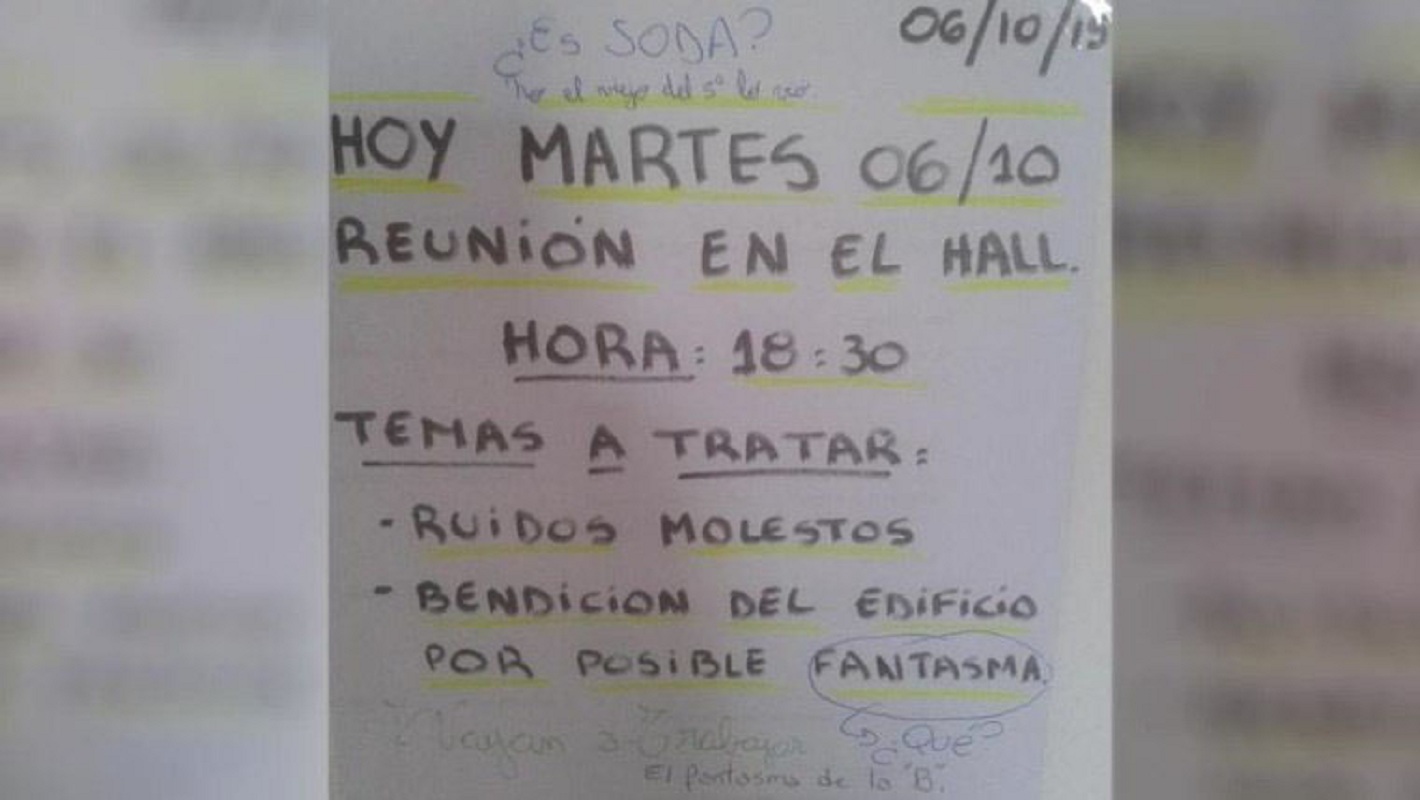 ¿Es SODA?
06/10/15
No, el viejo del 5° los vio.
HOY MARTES 06/10
REUNIÓN EN EL HALL.
HORA: 18:30
TEMAS A TRATAR:
- RUIDOS MOLESTOS
- BENDICION DEL EDIFICIO
POR POSIBLE FANTASMA.
Vayan a Trabajar
¿Qué?
El fantasma de la "B".